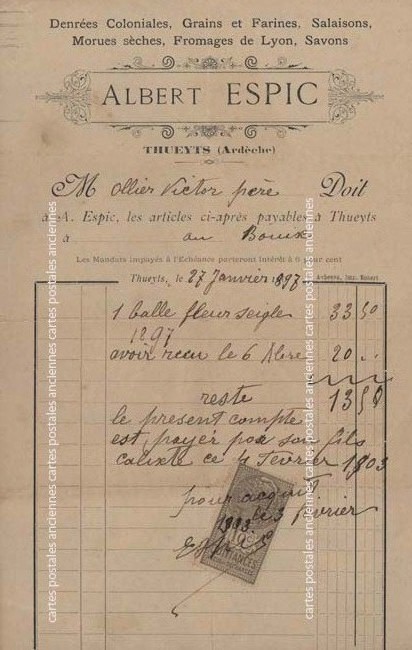 Denrées Coloniales, Grains et Farines, Salaisons,
Morues sèches, Fromages de Lyon, Savons
ALBERT ESPIC
THUEYTS (Ardèche)
M Ollier Victor père Doit
à A. Espic, les articles ci-après payables à Thueyts
à au
Les Mandats impayés à l'Echéance porteront intérêt à 6 pour cent
Thueyts, le 27 Janvier 1897
1 balle fleur seigle 33 50
1897
avoir recu le 6 20
reste 13 50
le present compte
est payer par son fils
calixte ce 4 fevrier 1903
pour acquit
le 3 février
1903
FINANCES
cartes postales anciennes cartes postales anciennes cartes postales anciennes
cartes postales anciennes cartes postales anciennes cartes postales anciennes